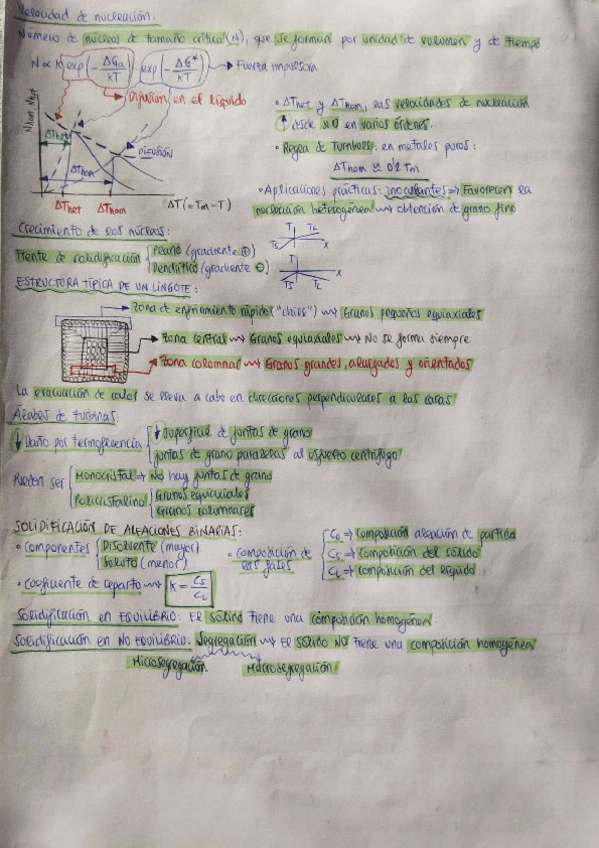 Velocidad de nucleación.
Número de núcleos de tamaño crítico (N), que se forman por unidad de volumen y de tiempo
N ∝ K exp(-ΔGa/kT) exp(-ΔG*/kT) → Fuerza impulsora
Difusión en el líquido
Nhom, Nhet
ΔThet
ΔThom
DIFUSIÓN
ΔThet ΔThom ΔT(=Tm-T)
• ΔThet y ΔThom, las velocidades de nucleación
↑ desde ≈0 en varios órdenes.
• Regla de Turnbull: en metales puros:
ΔThom ≈ 0'2 Tm
• Aplicaciones prácticas: inoculantes ⇒ Favorecen la
nucleación heterogénea → obtención de grano fino
Crecimiento de los núcleos:
Frente de solidificación { Plano (gradiente ⊕)
Dendrítico (gradiente ⊖)
T TL
Ts x
T
Ts TL x
ESTRUCTURA TÍPICA DE UN LINGOTE:
Zona de enfriamiento rápido ("chill") → Granos pequeños equiaxiales
Zona central → Granos equiaxiales → No se forma siempre
Zona columnar → Granos grandes, alargados y orientados
La evacuación de calor se lleva a cabo en direcciones perpendiculares a las caras
Álabes de turbinas:
↓ Daño por termofluencia { ↓ Superficial de juntas de grano
juntas de grano paralelas al esfuerzo centrífugo
Pueden ser { Monocristal ⇒ No hay juntas de grano
Policristalino { Granos equiaxiales
Granos columnares
SOLIDIFICACIÓN DE ALEACIONES BINARIAS:
• Componentes { Disolvente (mayor)
Soluto (menor)
• Composición de las fases { Co ⇒ Composición aleación de partida
Cs ⇒ Composición del sólido
CL ⇒ Composición del líquido
• Coeficiente de reparto → K = Cs/CL
Solidificación en EQUILIBRIO: El sólido tiene una composición homogénea.
Solidificación en NO EQUILIBRIO: Segregación → El sólido NO tiene una composición homogénea
Microsegregación Macrosegregación